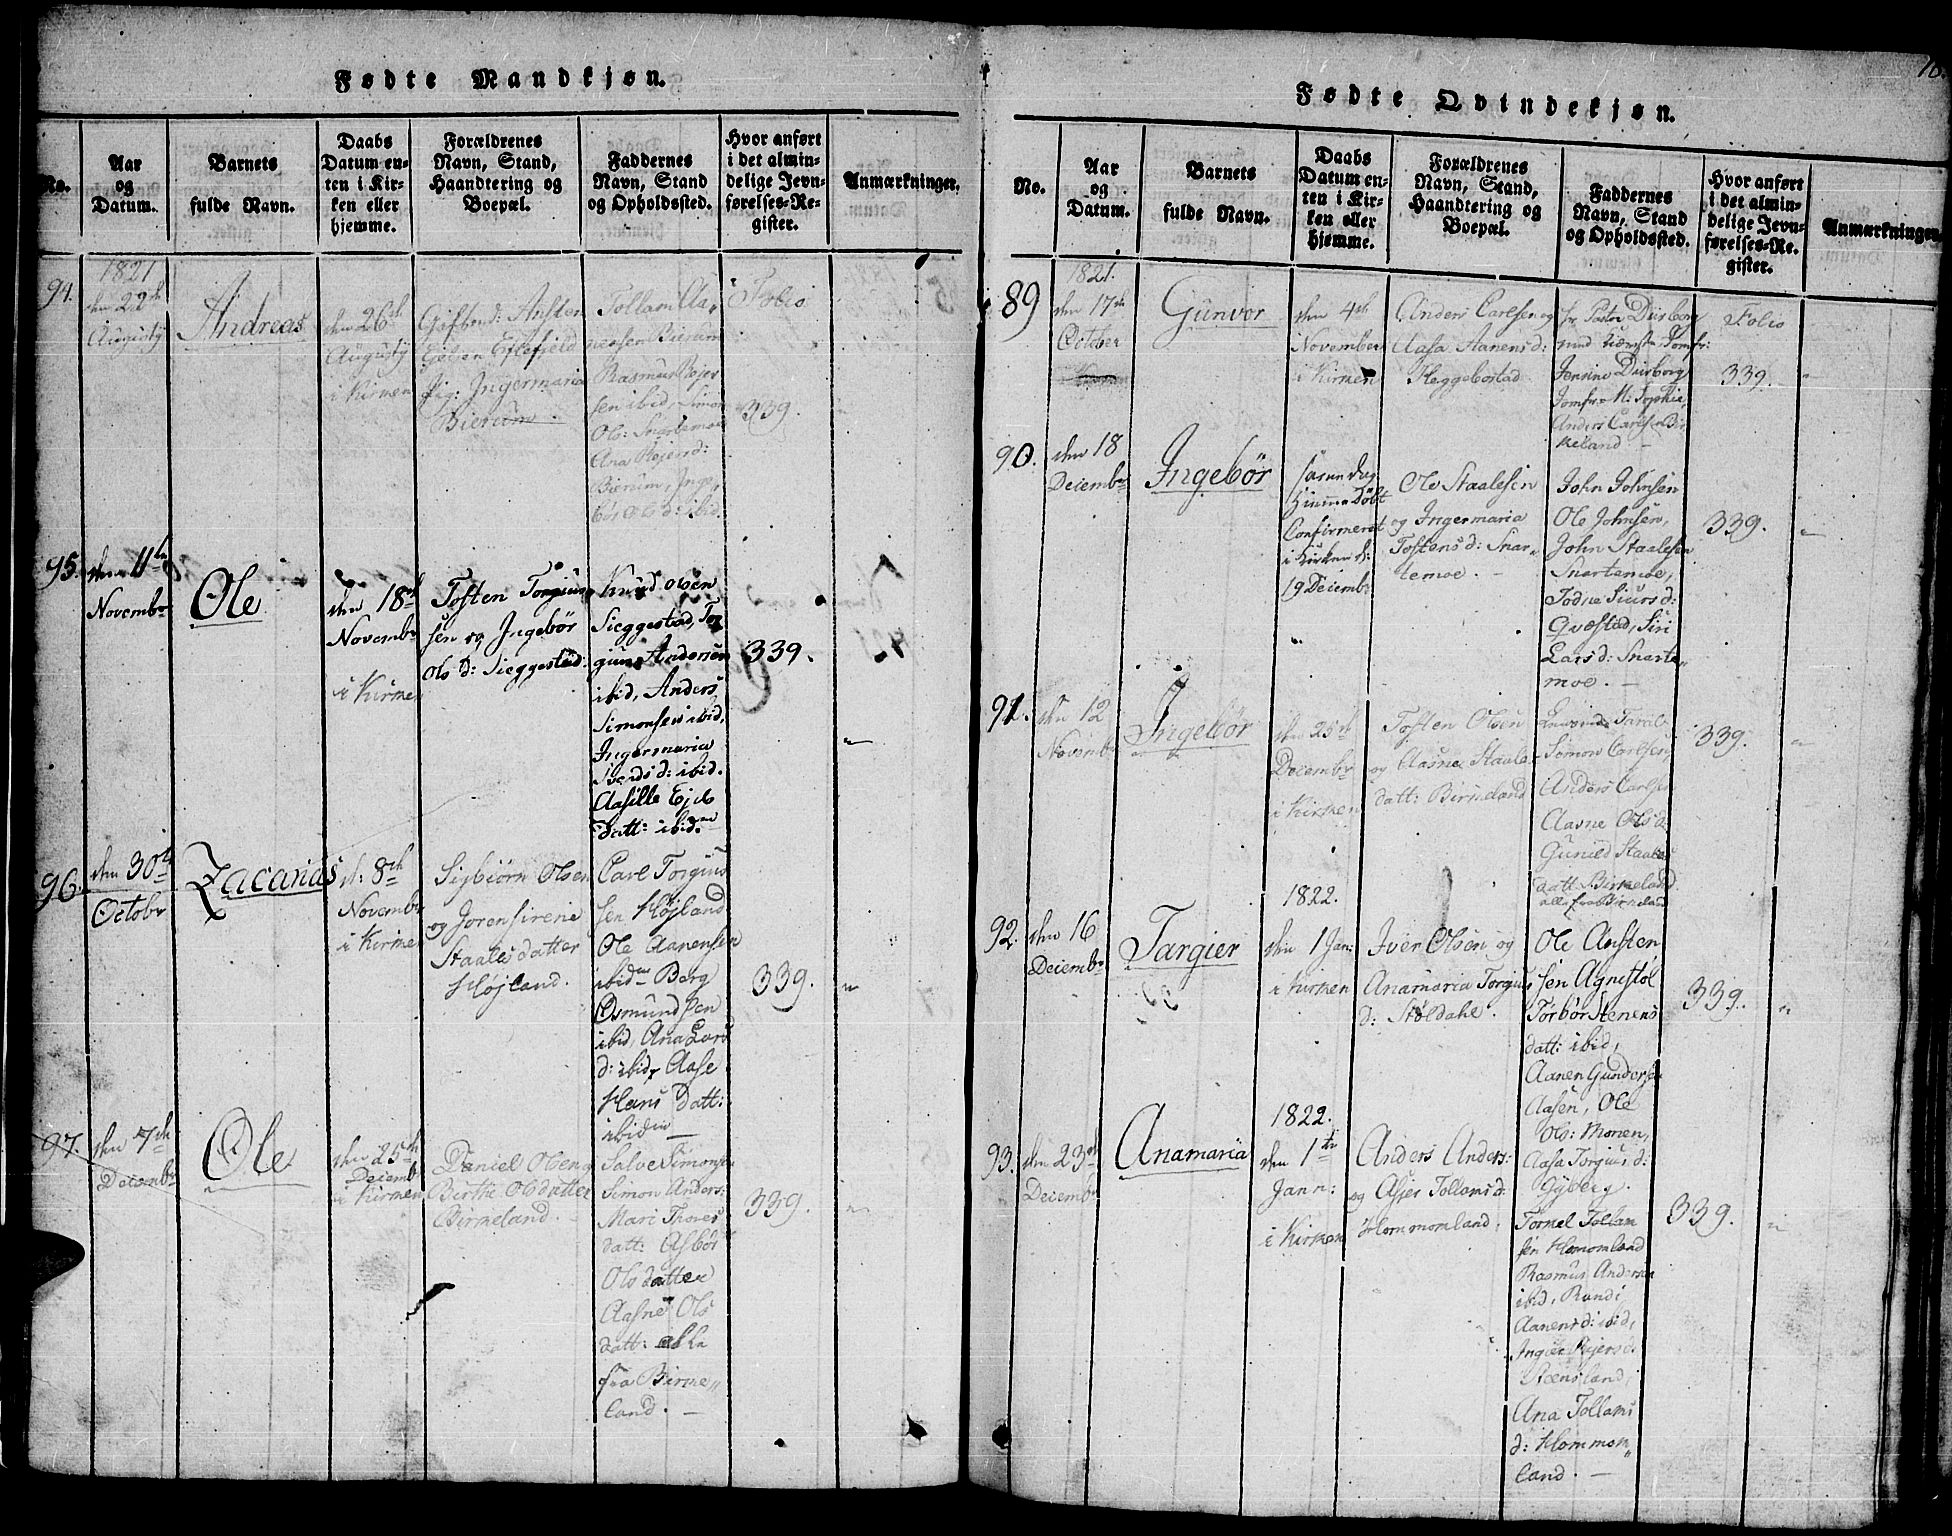 Fødte Mandkjøn.
No.
Aar
og
Datum.
Barnets
fulde Navn.
Daabs
Datum en-
ten i Kir-
ken eller
hjemme.
Forældrenes
Navn, Stand,
Haandtering og
Boepæl.
Faddernes
Navn, Stand
og Opholdssted.
Hvor anført
i det almin-
delige Jevn-
førelses-Re-
gister.
Anmærkninger.
94.
1821
den 22de
Augusty
Andreas
den 26de
Augusty
i Kirken
Ansten
Pig: Ingermaria
Bierum.
Tollam Aa-
nensen Bierum
Rasmus Rejer
sen ibid, Simon
Ols: Snartemoe
Ana Rejersd:
Bierum, Inge-
bør Olsd: ibid.
Folio
339.
95.
den 11te
Novembr
Ole
den 18de
Novembr
i Kirken
Tosten Torgius
sen og Ingebør
Olsd: Sieggestad.
Knud Olsen
Sieggestad, Tor
gius Andersen
ibid, Anders
Simonsen ibid,
Ingermaria
Svends d: ibid.
Aasille Ejels
Datt: ibidm
339.
"
96.
den 30te
Octobr
Zacarias
d: 8de
Novembr
i Kirken
Sigbiørn Olsen
og Joren Sirene
Staalesdatter
Højland.
Carl Torgius
sen Højland
Ole Aanensen
ibidm Berg
Osmundsen
ibid, Ana Lars
d: ibid, Aase
Hans Datt:
ibidm
339.
"
97.
den 7de
Decembr
Ole
den 25de
Decemb
i Kirken
Daniel Olsen og
Birthe Olsdatter
Birkeland.
Salve Simonsen
Simon Anders:
Mari Thores
datt: Asbør
Olsdatter
Aasne Ols
datt: alle
fra Birke-
land.
339.
"
Fødte Qvindekjøn.
No.
Aar
og
Datum.
Barnets
fulde Navn.
Daabs
Datum en-
ten i Kir-
ken eller
hjemme.
Forældrenes
Navn, Stand,
Haandtering og
Boepæl.
Faddernes
Navn, Stand
og Opholdssted.
Hvor anført
i det almin-
delige Jevn-
førelses-Re-
gister.
Anmærkninger.
89
1821.
den 17de
October
i Kirken
Gunvor
den 4de
November
i Kirken
Anders Carlsen og
Aasa Aanensd:
Heggebostad
hr Pastor Diirborg
Jensine Diirborg
Jomfr: M: Sophie,
Anders Carlsen Bir
keland
Folio
339.
"
90.
den 18
Decembr
Ingebør
samme Dag
hiemme Døbt
Confirmeret
i Kirken d:
19 Decembr
"
Ole Staalesen
og Ingermaria
Tostensd: Snar-
temoe.
John Johnsen
Ole Johnsen,
John Staalesen
Snartemoe,
Todne Siursd:
Qvæstad, Siri
Larsd: Snarte-
moe.
339.
"
91.
den 12
Novembr
Ingebør
den 25de
Decembr
i Kirken
Tosten Olsen
og Aasne Staale-
datt: Birkeland
Simon Carlsen,
Anders Carlsen
Aasne Olsd
Gunild Staales
datt. Birkeland
alle fra Birkeland
339.
"
92.
den 16
Decembr
Targier
1822.
den 1 Jan:
i Kirken
Iver Olsen og
Anamaria Torgius
d: Støldahl.
Ole Ansten
sen Agnestøl
Torbør Stenens
datt: ibid,
Aanen Gundersen
Aasen, Ole
Ols: Monen,
Aasa Torgiusd:
Gyberg.
339.
"
93.
den 23de
Decembr
Anamaria
1822.
den 1te
Jann:
i Kirken
Anders Anders:
og Asjer Tollamsd:
Hommomland.
Tornel Tollam
sen Homomland
Rasmus Andersen
ibid, Randi
Aanensd: ibid,
Inger Rejersd:
Steensland,
Ana Tollams
d: Hommom-
land.
339.
"